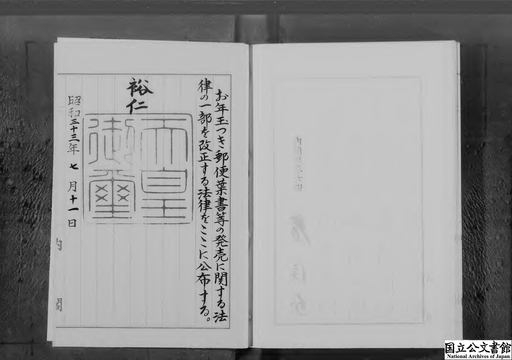 お年玉つき郵便葉書等の発売に関する法
律の一部を改正する法律をここに公布する。
裕仁
天皇
御璽
昭和三十三年七月十一日
国立公文書館
National Archives of Japan